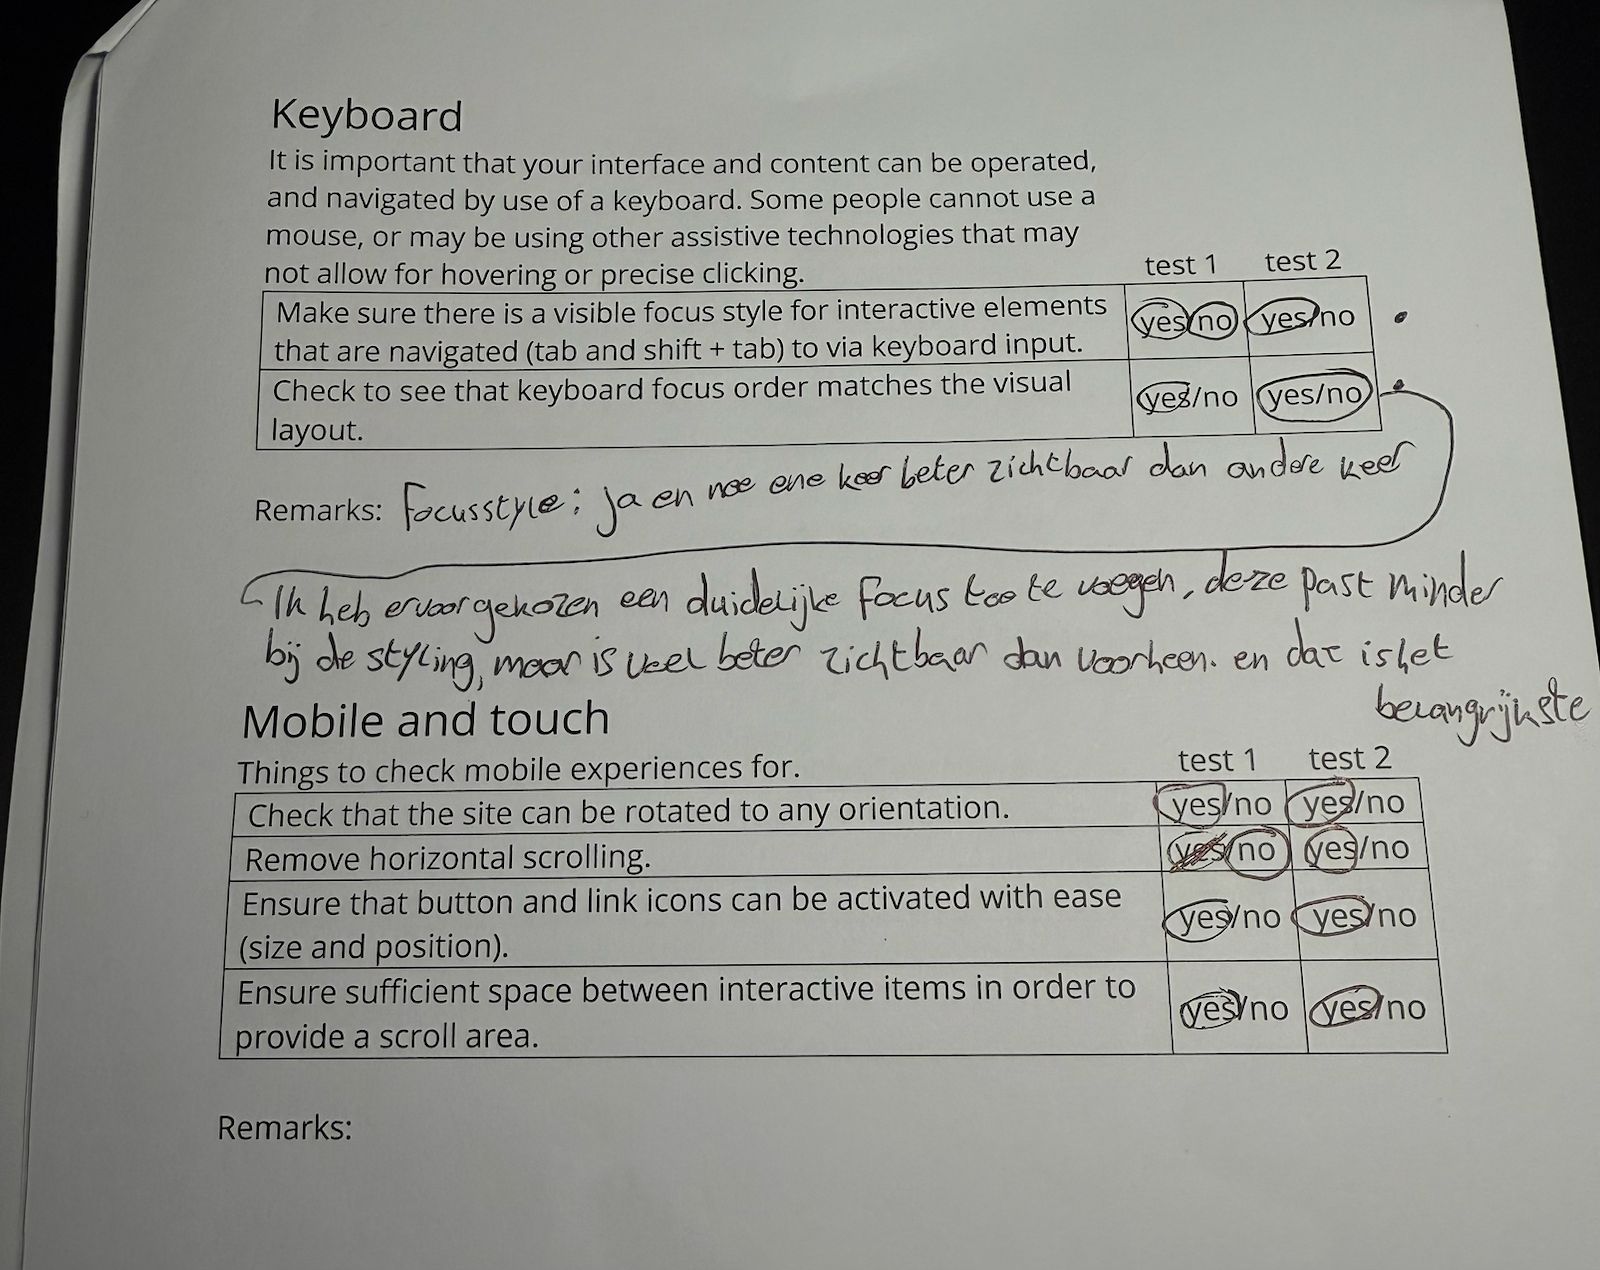 Keyboard
It is important that your interface and content can be operated,
and navigated by use of a keyboard. Some people cannot use a
mouse, or may be using other assistive technologies that may
not allow for hovering or precise clicking.
test 1 test 2
Make sure there is a visible focus style for interactive elements
that are navigated (tab and shift + tab) to via keyboard input.
yes/no yes/no
Check to see that keyboard focus order matches the visual
layout.
yes/no yes/no
Remarks: Focusstyle: ja en nee ene keer beter zichtbaar dan andere keer
Ik heb ervoor gekozen een duidelijke focus toe te voegen, deze past minder
bij de styling, maar is veel beter zichtbaar dan voorheen. en dat is het
belangrijkste
Mobile and touch
Things to check mobile experiences for.
test 1 test 2
Check that the site can be rotated to any orientation. yes/no yes/no
Remove horizontal scrolling. yes/no yes/no
Ensure that button and link icons can be activated with ease
(size and position).
yes/no yes/no
Ensure sufficient space between interactive items in order to
provide a scroll area.
yes/no yes/no
Remarks: